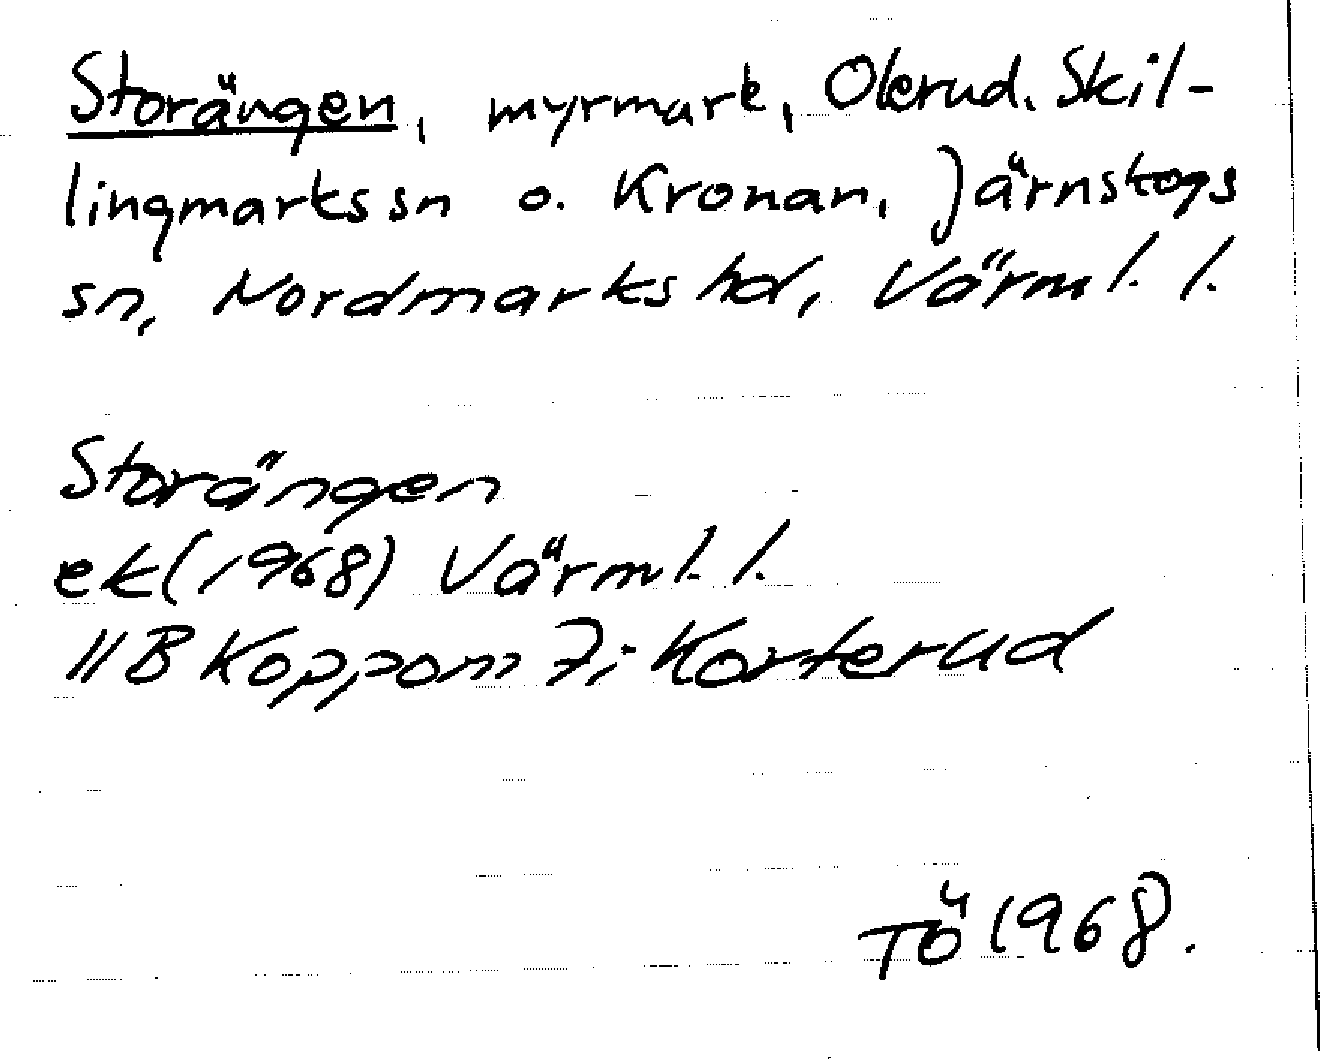 Storängen, myrmark, Olerud, Skil-
lingmarks sn o. Kronan, Järnskogs
sn, Nordmarks hd, Värml. l.
Storängen
ek (1968) Värml. l.
11B Koppom 7i Korterud
TÖ 1968.